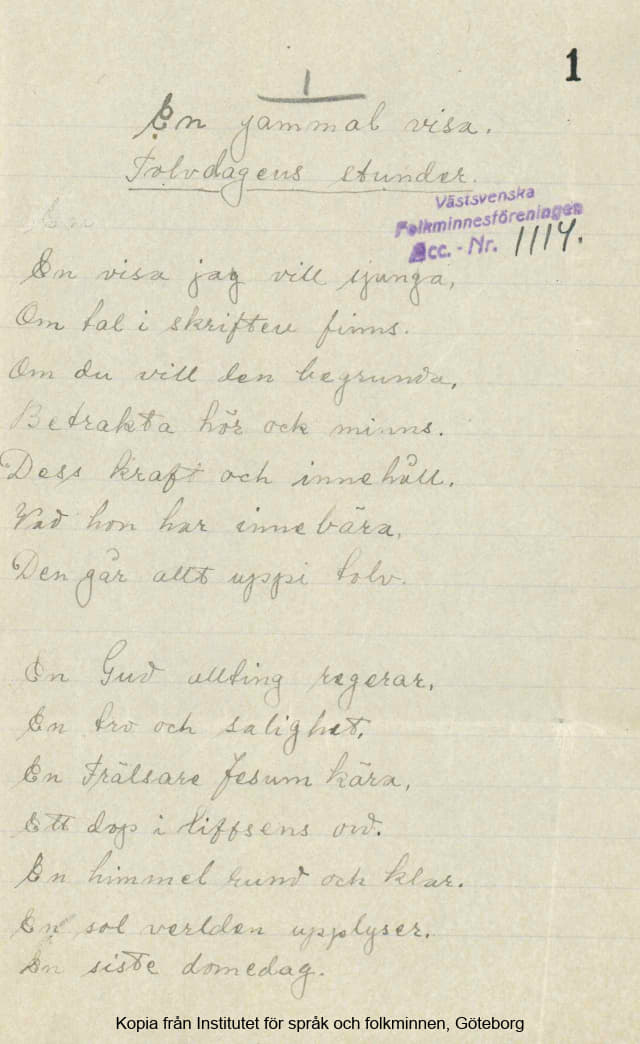 1
1
En gammal visa.
Tolvdagens stunder.
Västsvenska
Folkminnesföreningen
Acc. - Nr. 1114.
En
En visa jag vill sjunga,
Om tal i skriften finns.
Om du vill den begrunda,
Betrakta hör ock minns.
Dess kraft och innehåll.
Vad hon har innebära,
Den går allt uppi tolv.
En Gud allting regerar,
En tro och salighet,
En Frälsare Jesum kära,
Ett dop i liffsens ord.
En himmel rund och klar.
En sol verlden upplyser.
En siste domedag.
Kopia från Institutet för språk och folkminnen, Göteborg